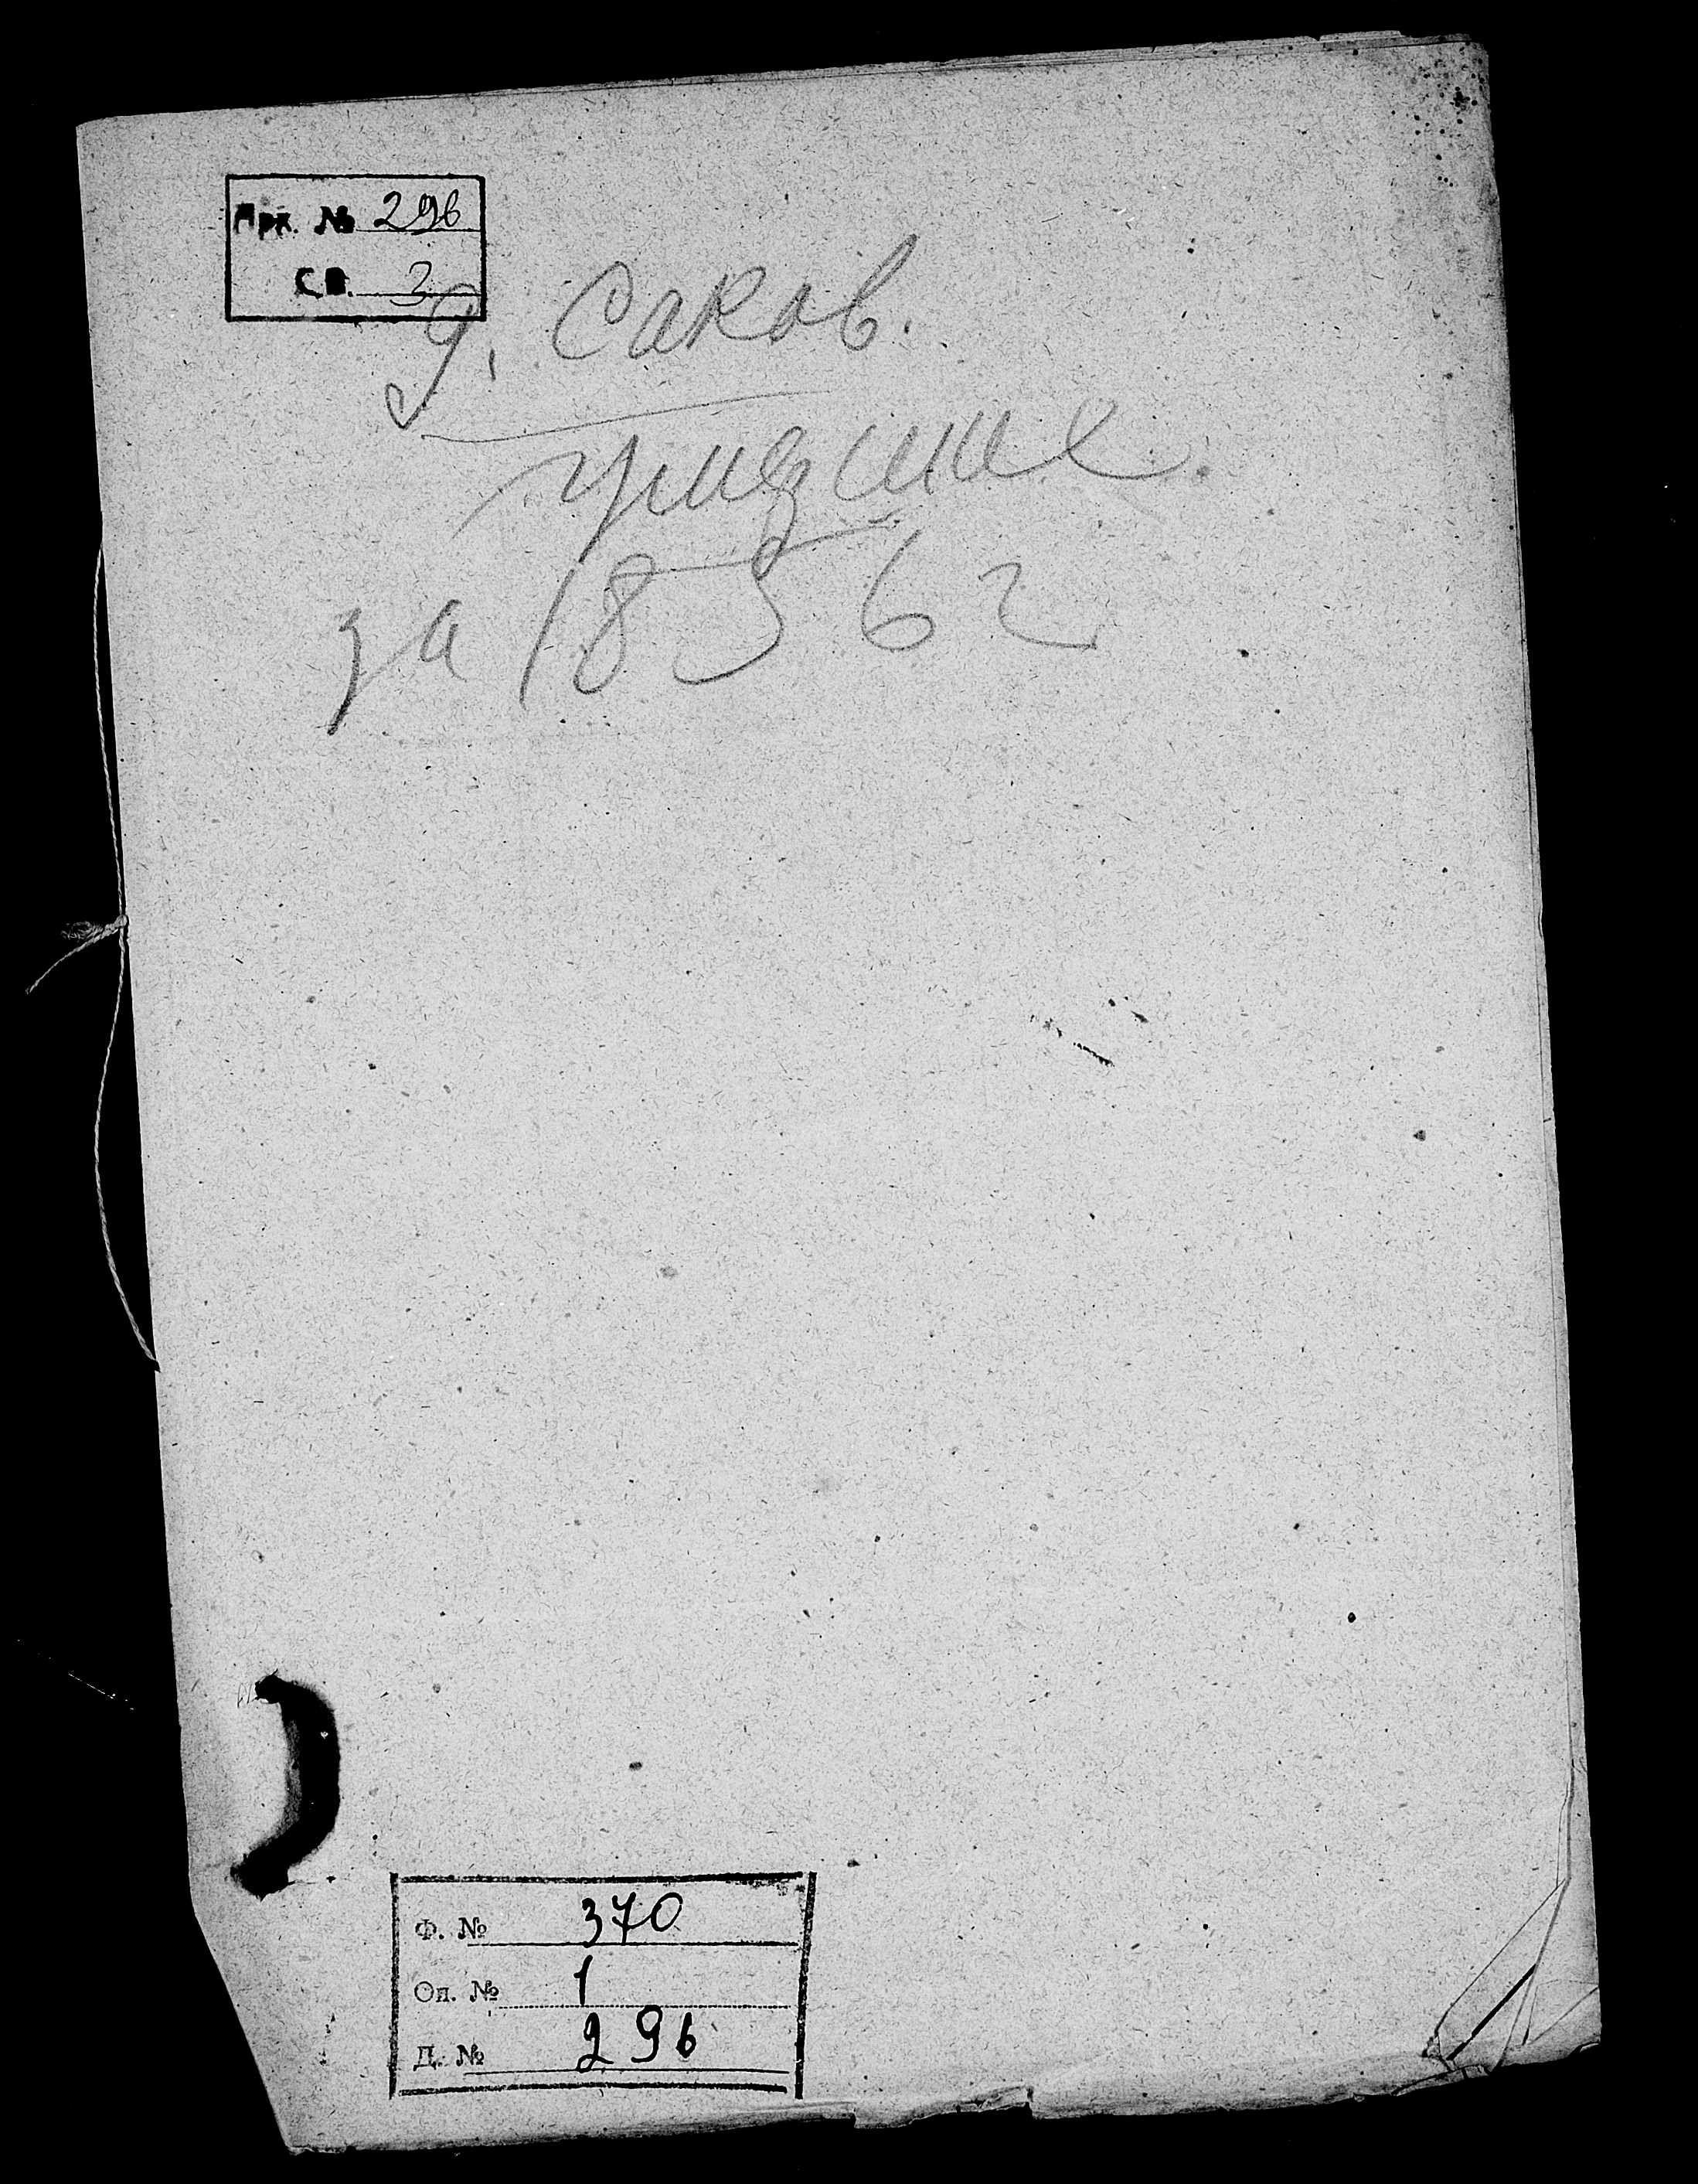 Арх. № 296
св. 3
д. Саков.
умерших
за 1856 г
Ф. № 370
Оп. № 1
Д. № 296